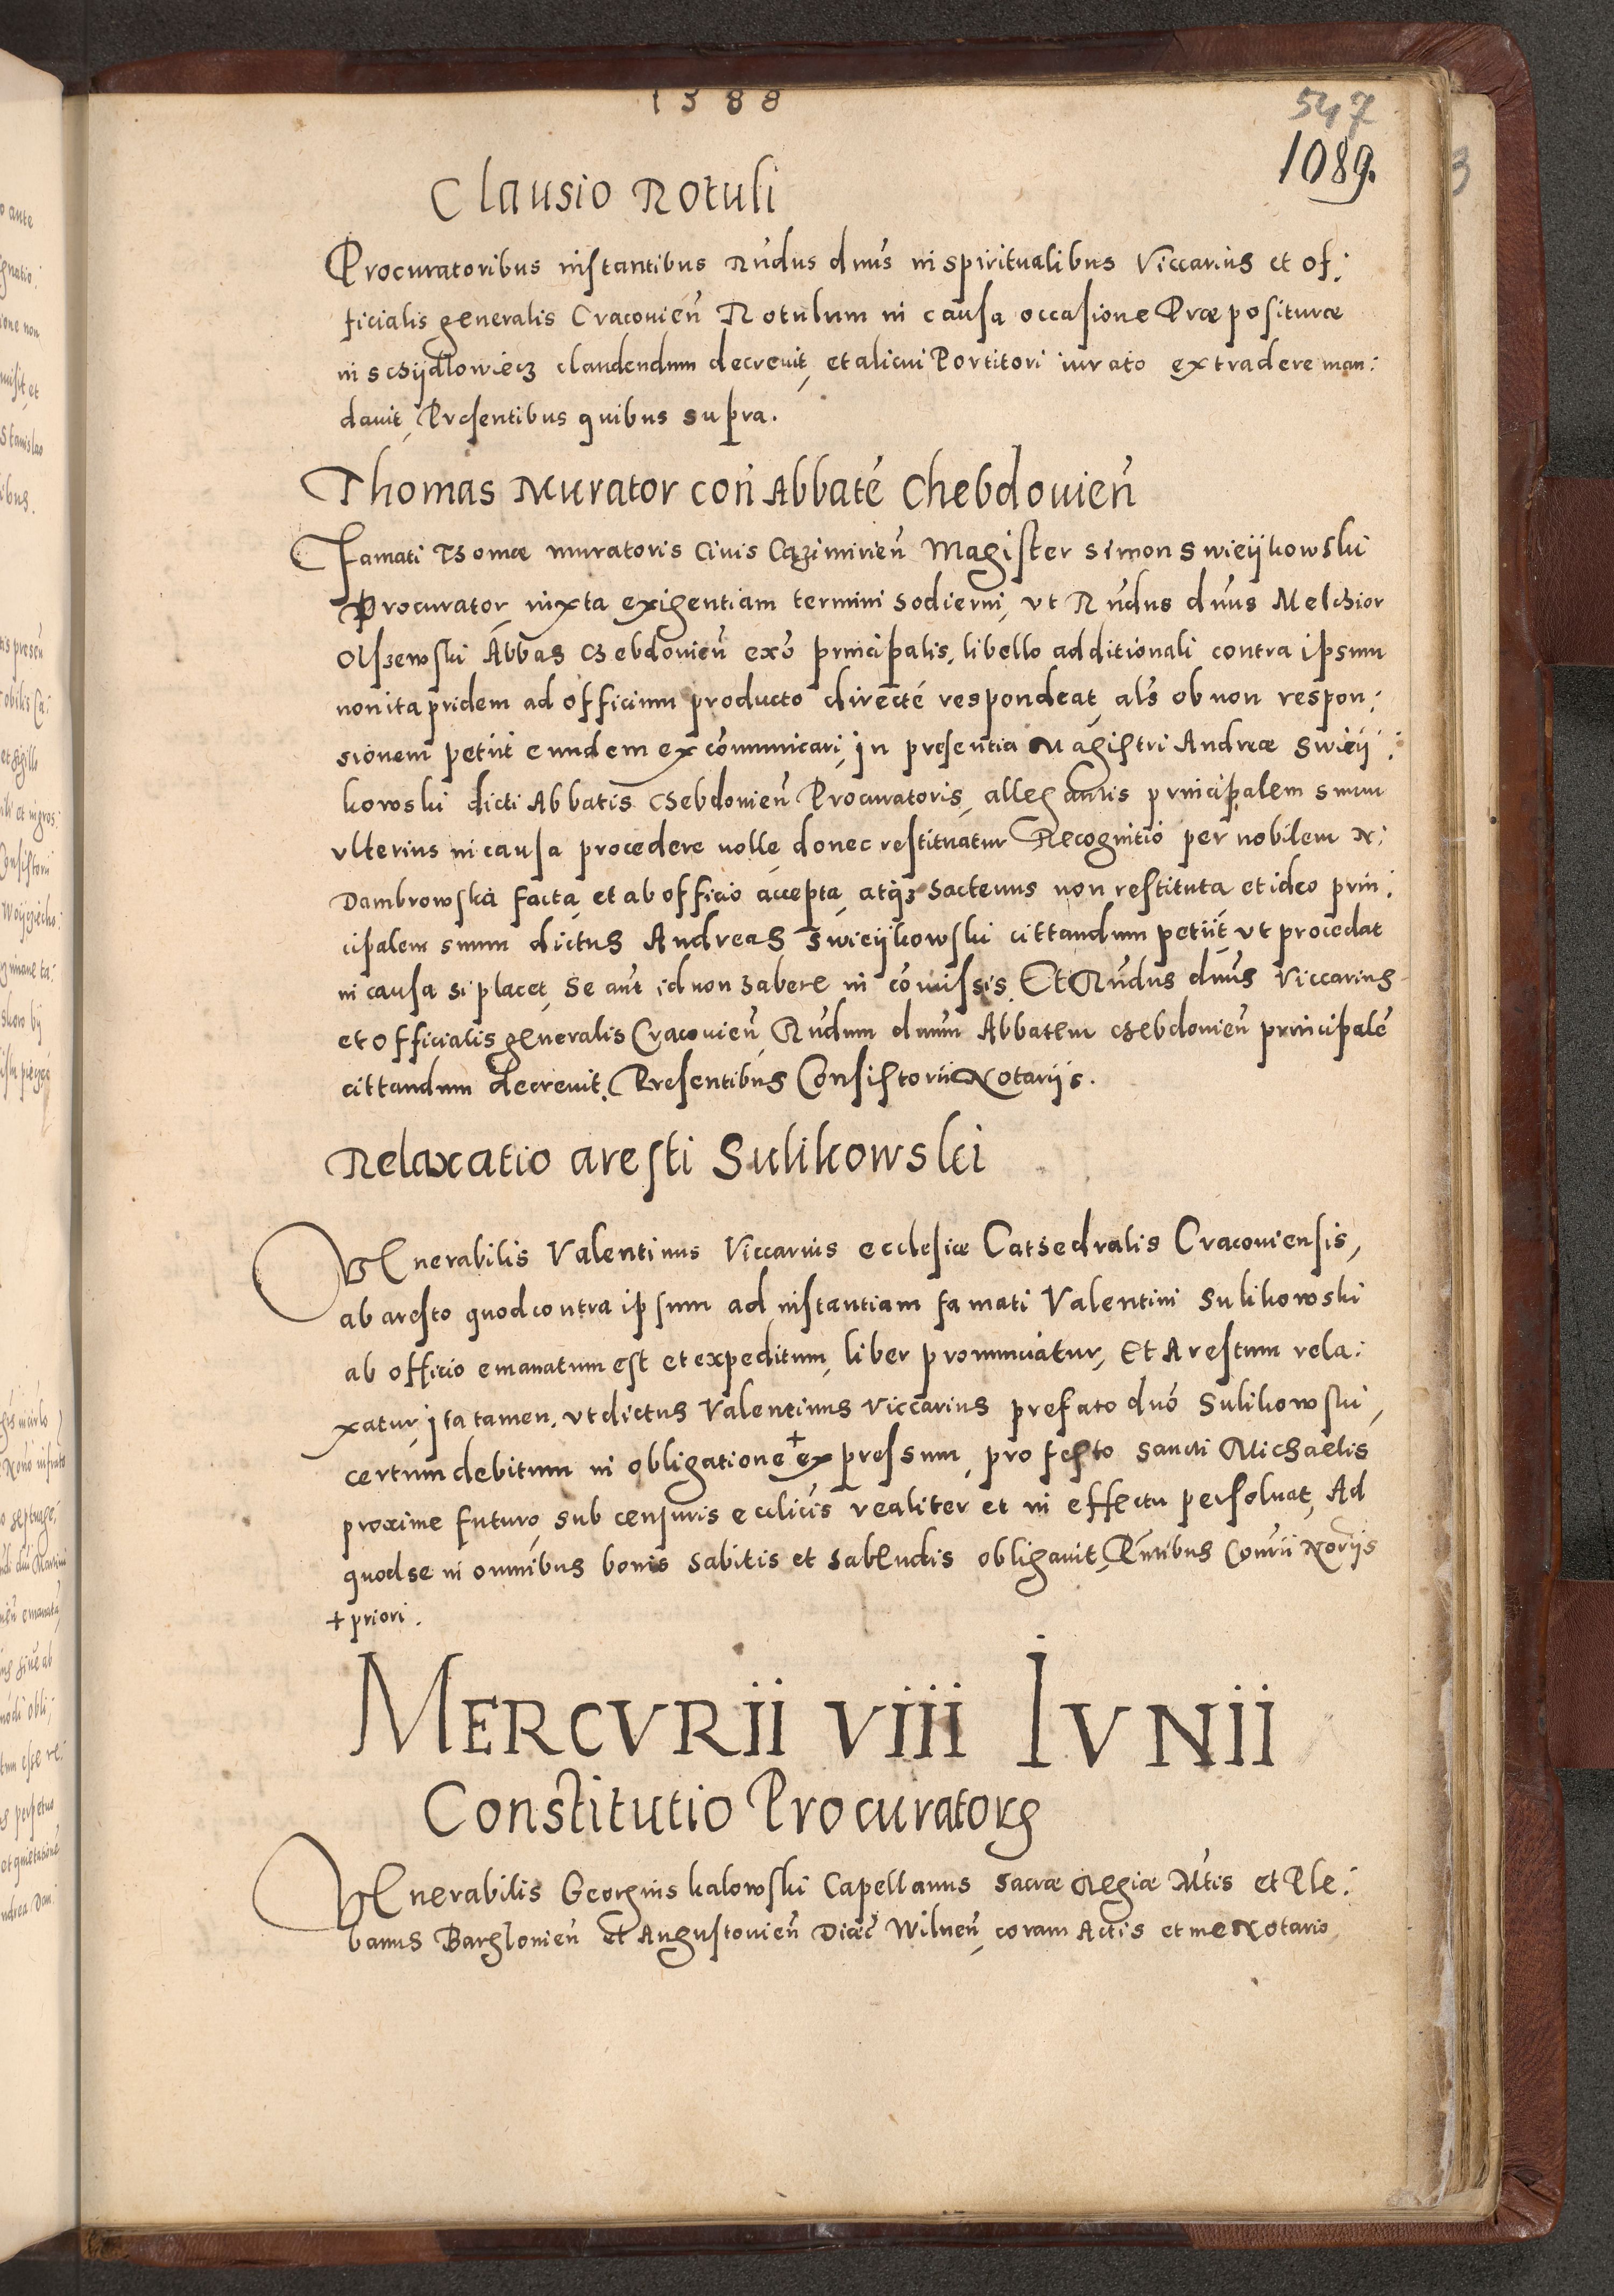 1588
547
1089.
Clausio Rotuli
Procuratoribus instantibus Rndus dnus in spiritualibus Viccarius et of:
ficialis generalis Cracovien Rotulum in causa occasione Præpositurae
in schijdlowiecz claudendum decrevit, et alicui Portitori iurato extradere man:
davit, Presentibus quibus supra.
Thomas Murator con Abbaté Chebdovien
Famati Thomæ muratoris Civis Cazimirien Magister Simon Swieijkowski
Procurator iuxta exigentiam termini hodierni, ut Rndus dnus Melchior
Olszewski Abbas Chebdovien exo principalis, libello additionali contra ipsum
non ita pridem ad officium producto directé respondeat, als ob non respon:
sionem petiit eundem excomunicari, in presentia Magistri Andreæ Swieij:
kowski dicti Abbatis Chebdovien Procuratoris, allegantis principalem suum
ulterius in causa procedere nolle donec restituatur Recognitio per nobilem N:
Dambrowska facta, et ab officio accepta, atq3 hactenus non restituta et ideo prin:
cipalem suum dictus Andreas Swieijkowski cittandum petiit, ut procedat
in causa si placet, Se aut id non habere in comissis. Et Rndus dnus Viccarius
et officialis generalis Cracovien, Rndum dnum Abbatem Chebdovien principalé
cittandum decrevit, Presentibus Consistorii Notarijs.
Relaxatio aresti Sulikowski
VEnerabilis Valentinus Viccarius ecclesiæ Cathedralis Cracoviensis,
ab aresto quod contra ipsum ad instantiam famati Valentini Sulikowski
ab officio emanatum est et expeditum, liber pronunciatur, Et Arestum rela:
xatur, ita tamen, ut dictus Valentinus Viccarius prefato dno Sulikowski,
certum debitum in obligatione + expressum, pro festo Sancti Michaelis
proxime futuro, sub censuris ecclicis realiter et in effectu persolvat, Ad
quod se in omnibus bonis habitis et habendis obligavit, Pntibus Conrii Norijs
+ priori.
MERCVRii Viii IVNii
Constitutio Procurators
VEnerabilis Georgius kalowski Capellanus Sacræ Regiæ Mtis et Ple:
banus Barglovien et Augustovien Diœc Wilnen, coram Actis et me Notario